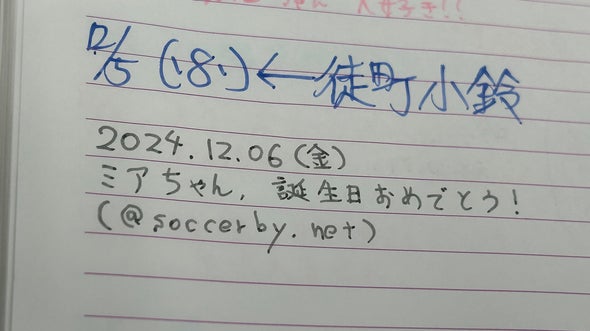 大好き!!
12/5 (:8:)←徒町小鈴
2024.12.06(金)
ミアちゃん, 誕生日おめでとう!
(@soccerby.net)